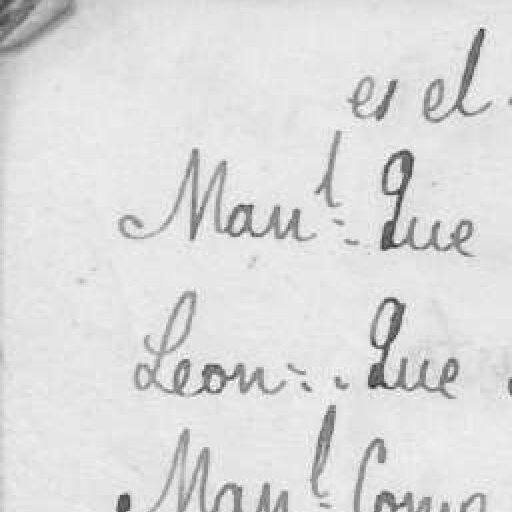 es el
Manl. Que
Leon.. Que
Manl. Como